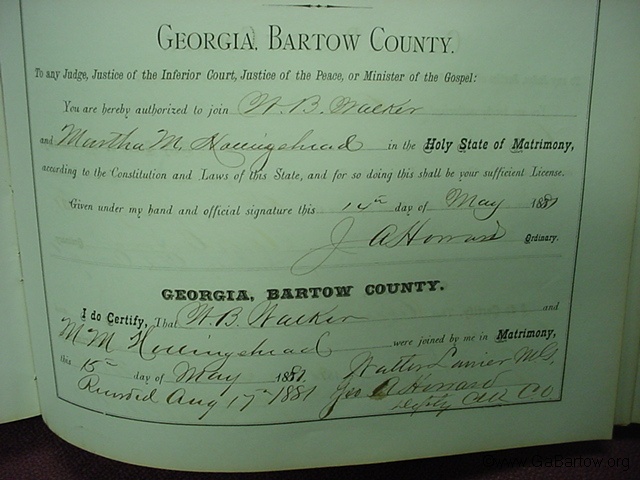 GEORGIA, BARTOW COUNTY.
To any Judge, Justice of the Inferior Court, Justice of the Peace, or Minister of the Gospel:
You are hereby authorized to join W. B. Walker
and Martha M. Hollingshead in the Holy State of Matrimony,
according to the Constitution and Laws of this State, and for so doing this shall be your sufficient License.
Given under my hand and official signature this 14th day of May 1881
J A Howard Ordinary.
GEORGIA, BARTOW COUNTY.
I do Certify, That W. B. Walker and
M M Hollingshead were joined by me in Matrimony,
this 15th day of May 1881. Walter Lanier M.G.
Recorded Aug 17th 1881 Jas A Howard
Deputy Clk C.O.
www.GaBartow.org